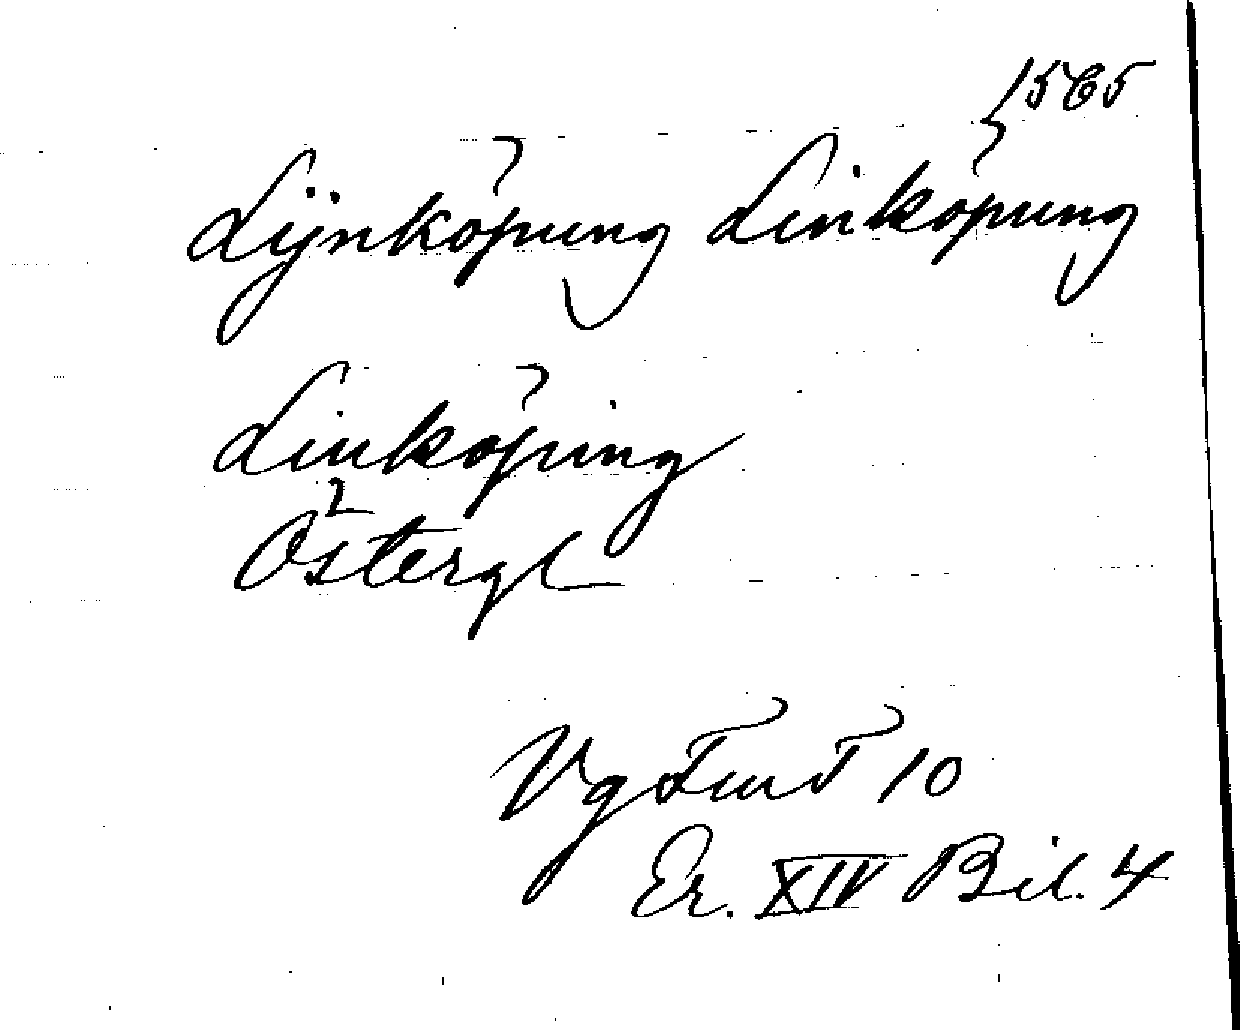 1565
Lijnköpung Linköpung
Linköping
Östergl
Vg Fms T 10
Er. XIV Bil. 4